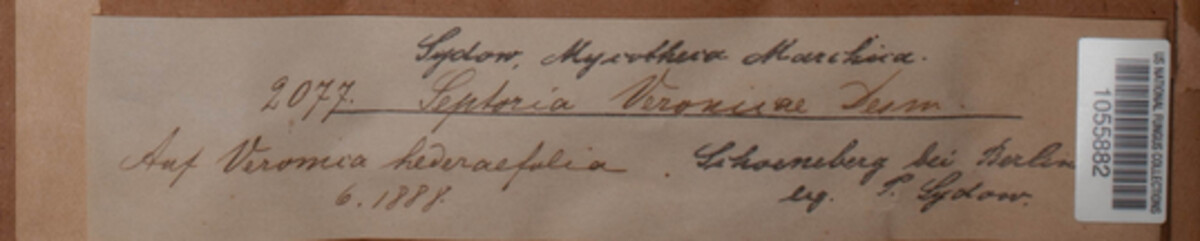 Sydow, Mycotheca Marchica.
2077. Septoria Veronicae Desm.
Auf Veronica hederaefolia. Schoeneberg bei Berlin
6. 1888. leg. P. Sydow.
US NATIONAL FUNGUS COLLECTIONS
1055882